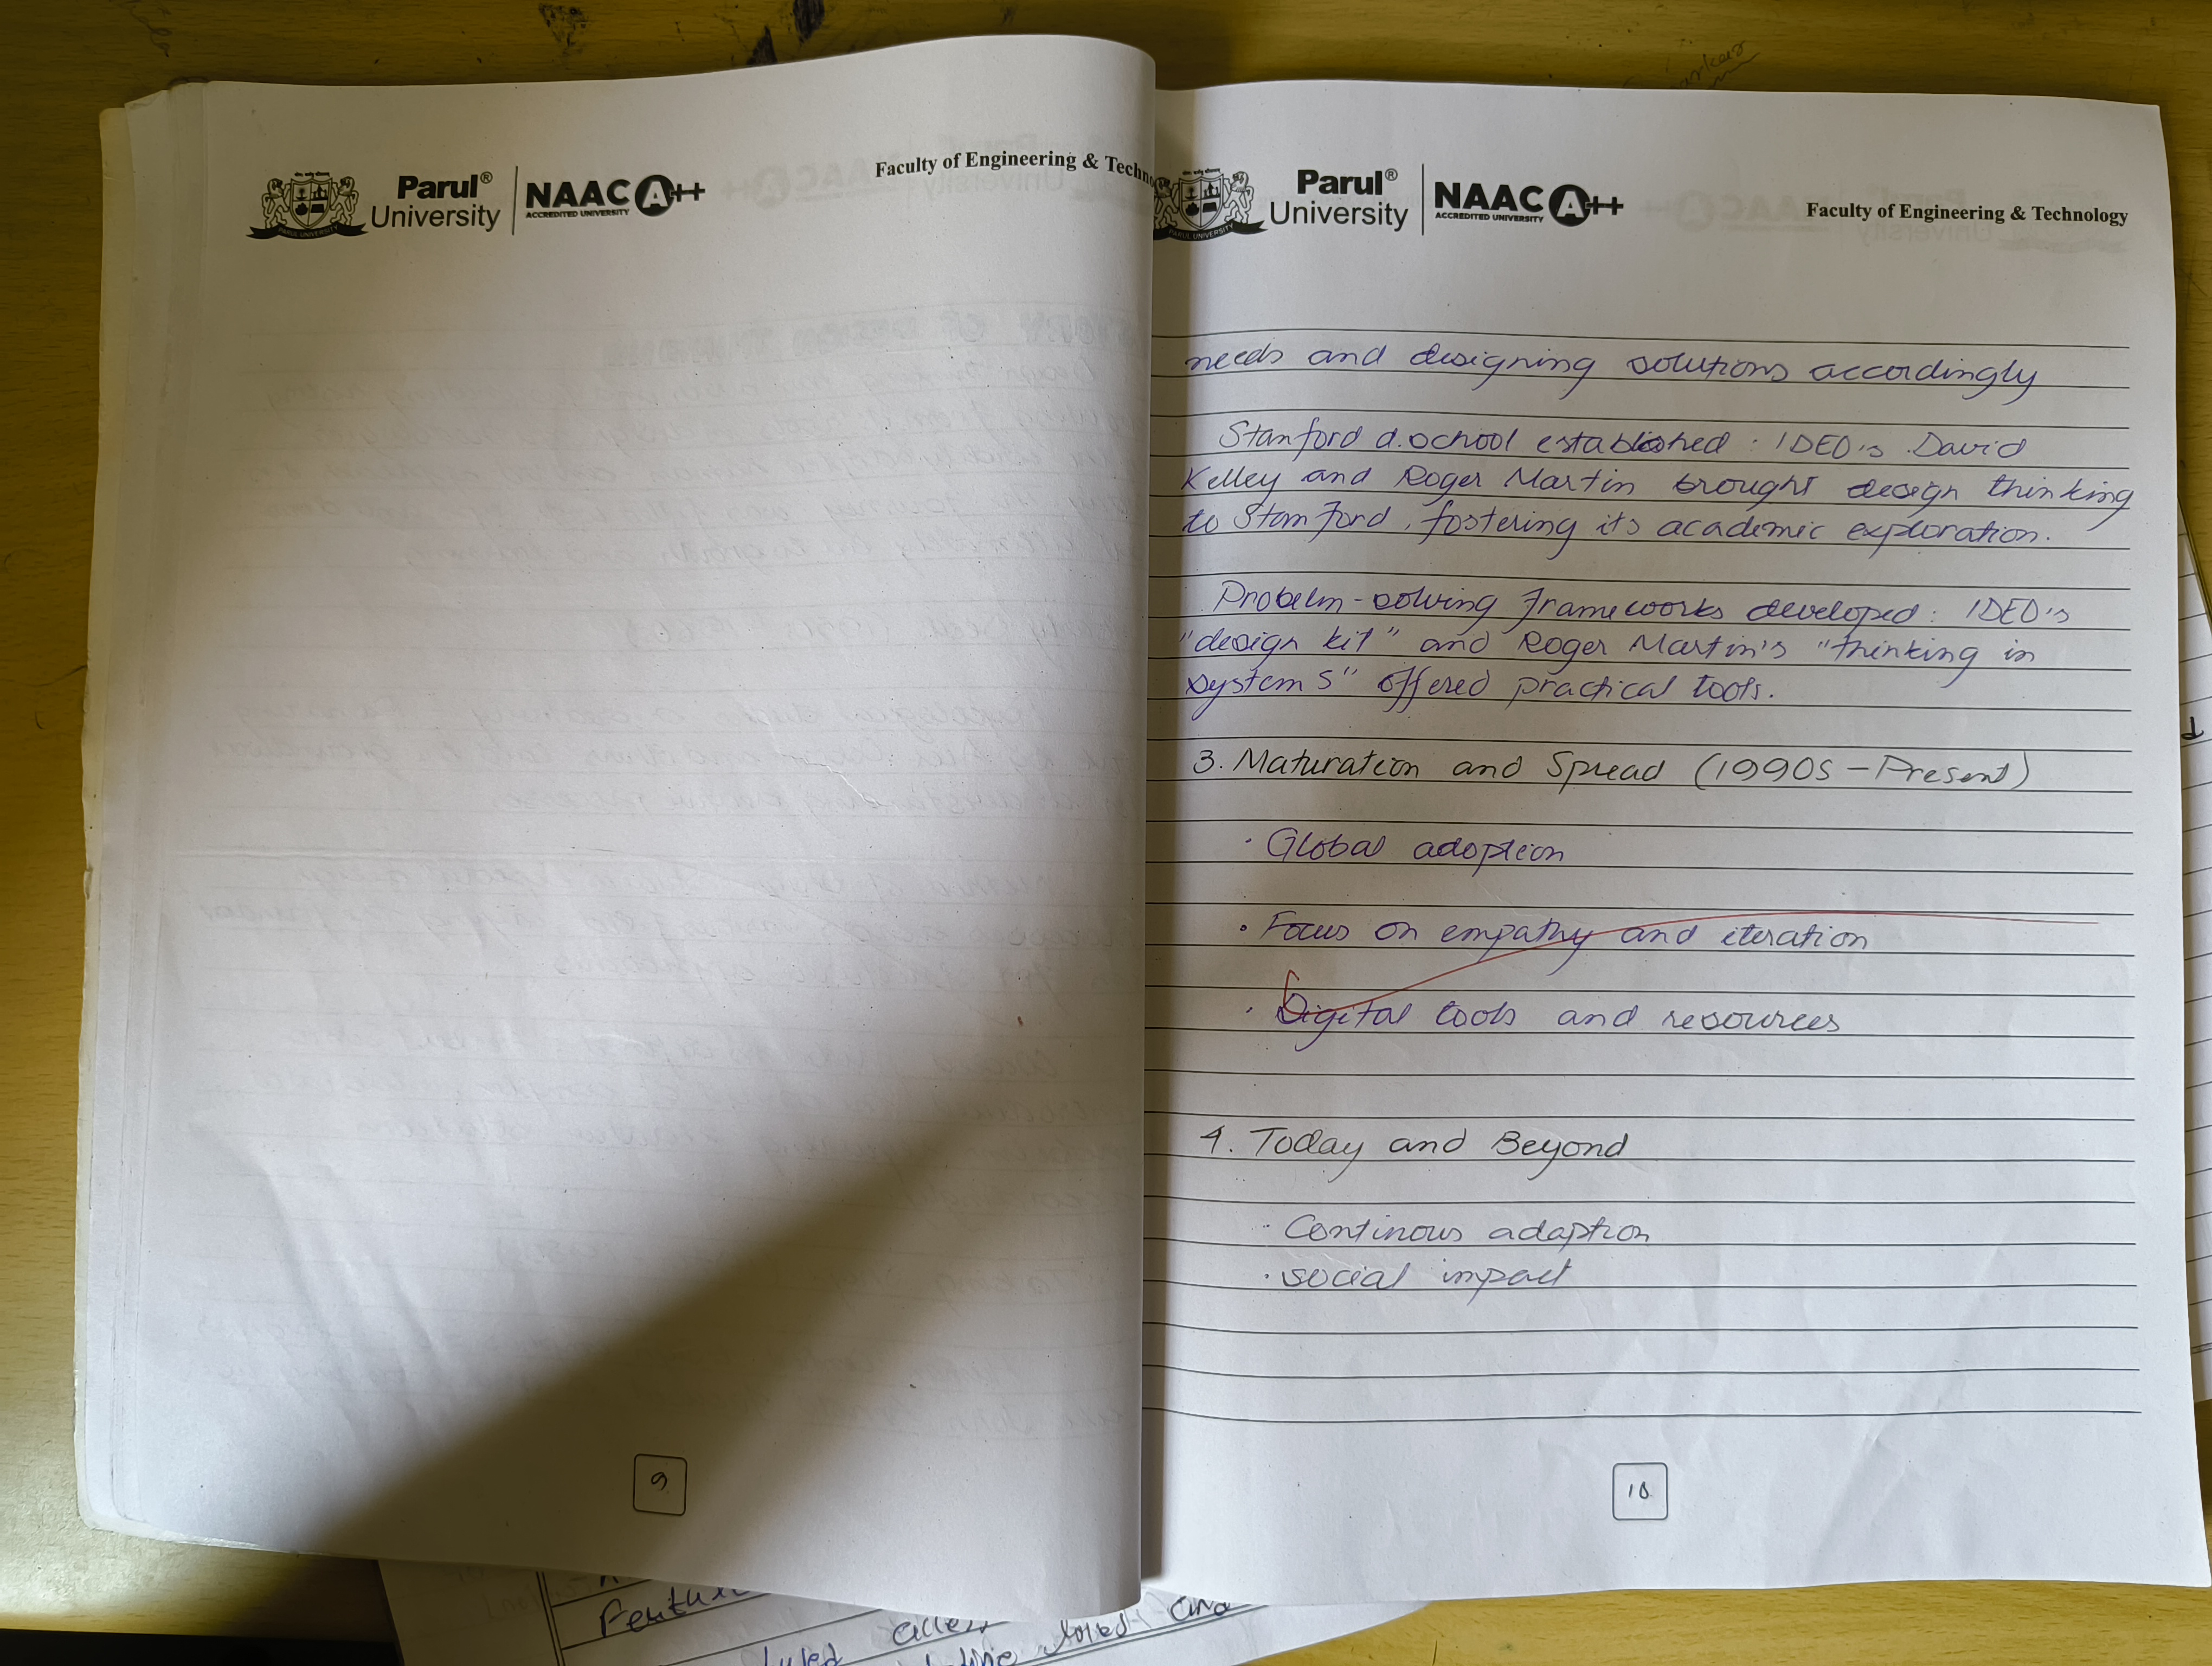 Parul®
University
NAAC A++
ACCREDITED UNIVERSITY
PARUL UNIVERSITY
Faculty of Engineering & Techno
9
Parul®
University
NAAC A++
ACCREDITED UNIVERSITY
PARUL UNIVERSITY
Faculty of Engineering & Technology
needs and designing solutions accordingly
Stanford d.school established : IDEO's David
Kelley and Roger Martin brought design thinking
to Stanford, fostering its academic exploration.
Probelm-solving frameworks developed : IDEO's
"design kit" and Roger Martin's "thinking in
systems" offered practical tools.
3. Maturation and Spread (1990s - Present)
• Global adoption
• Focus on empathy and iteration
• Digital tools and resources
4. Today and Beyond
• Continous adaption
• social impact
10